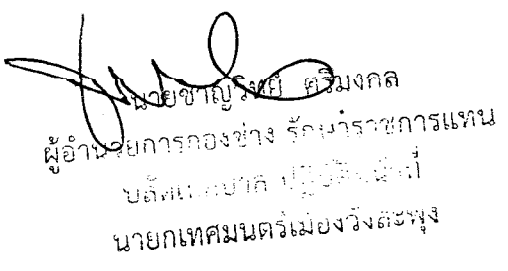 นายชาญวิทย์ ศรีมงคล
ผู้อำนวยการกองช่าง รักษาราชการแทน
ปลัดเทศบาล ปฏิบัติหน้าที่
นายกเทศมนตรีเมืองวังสะพุง